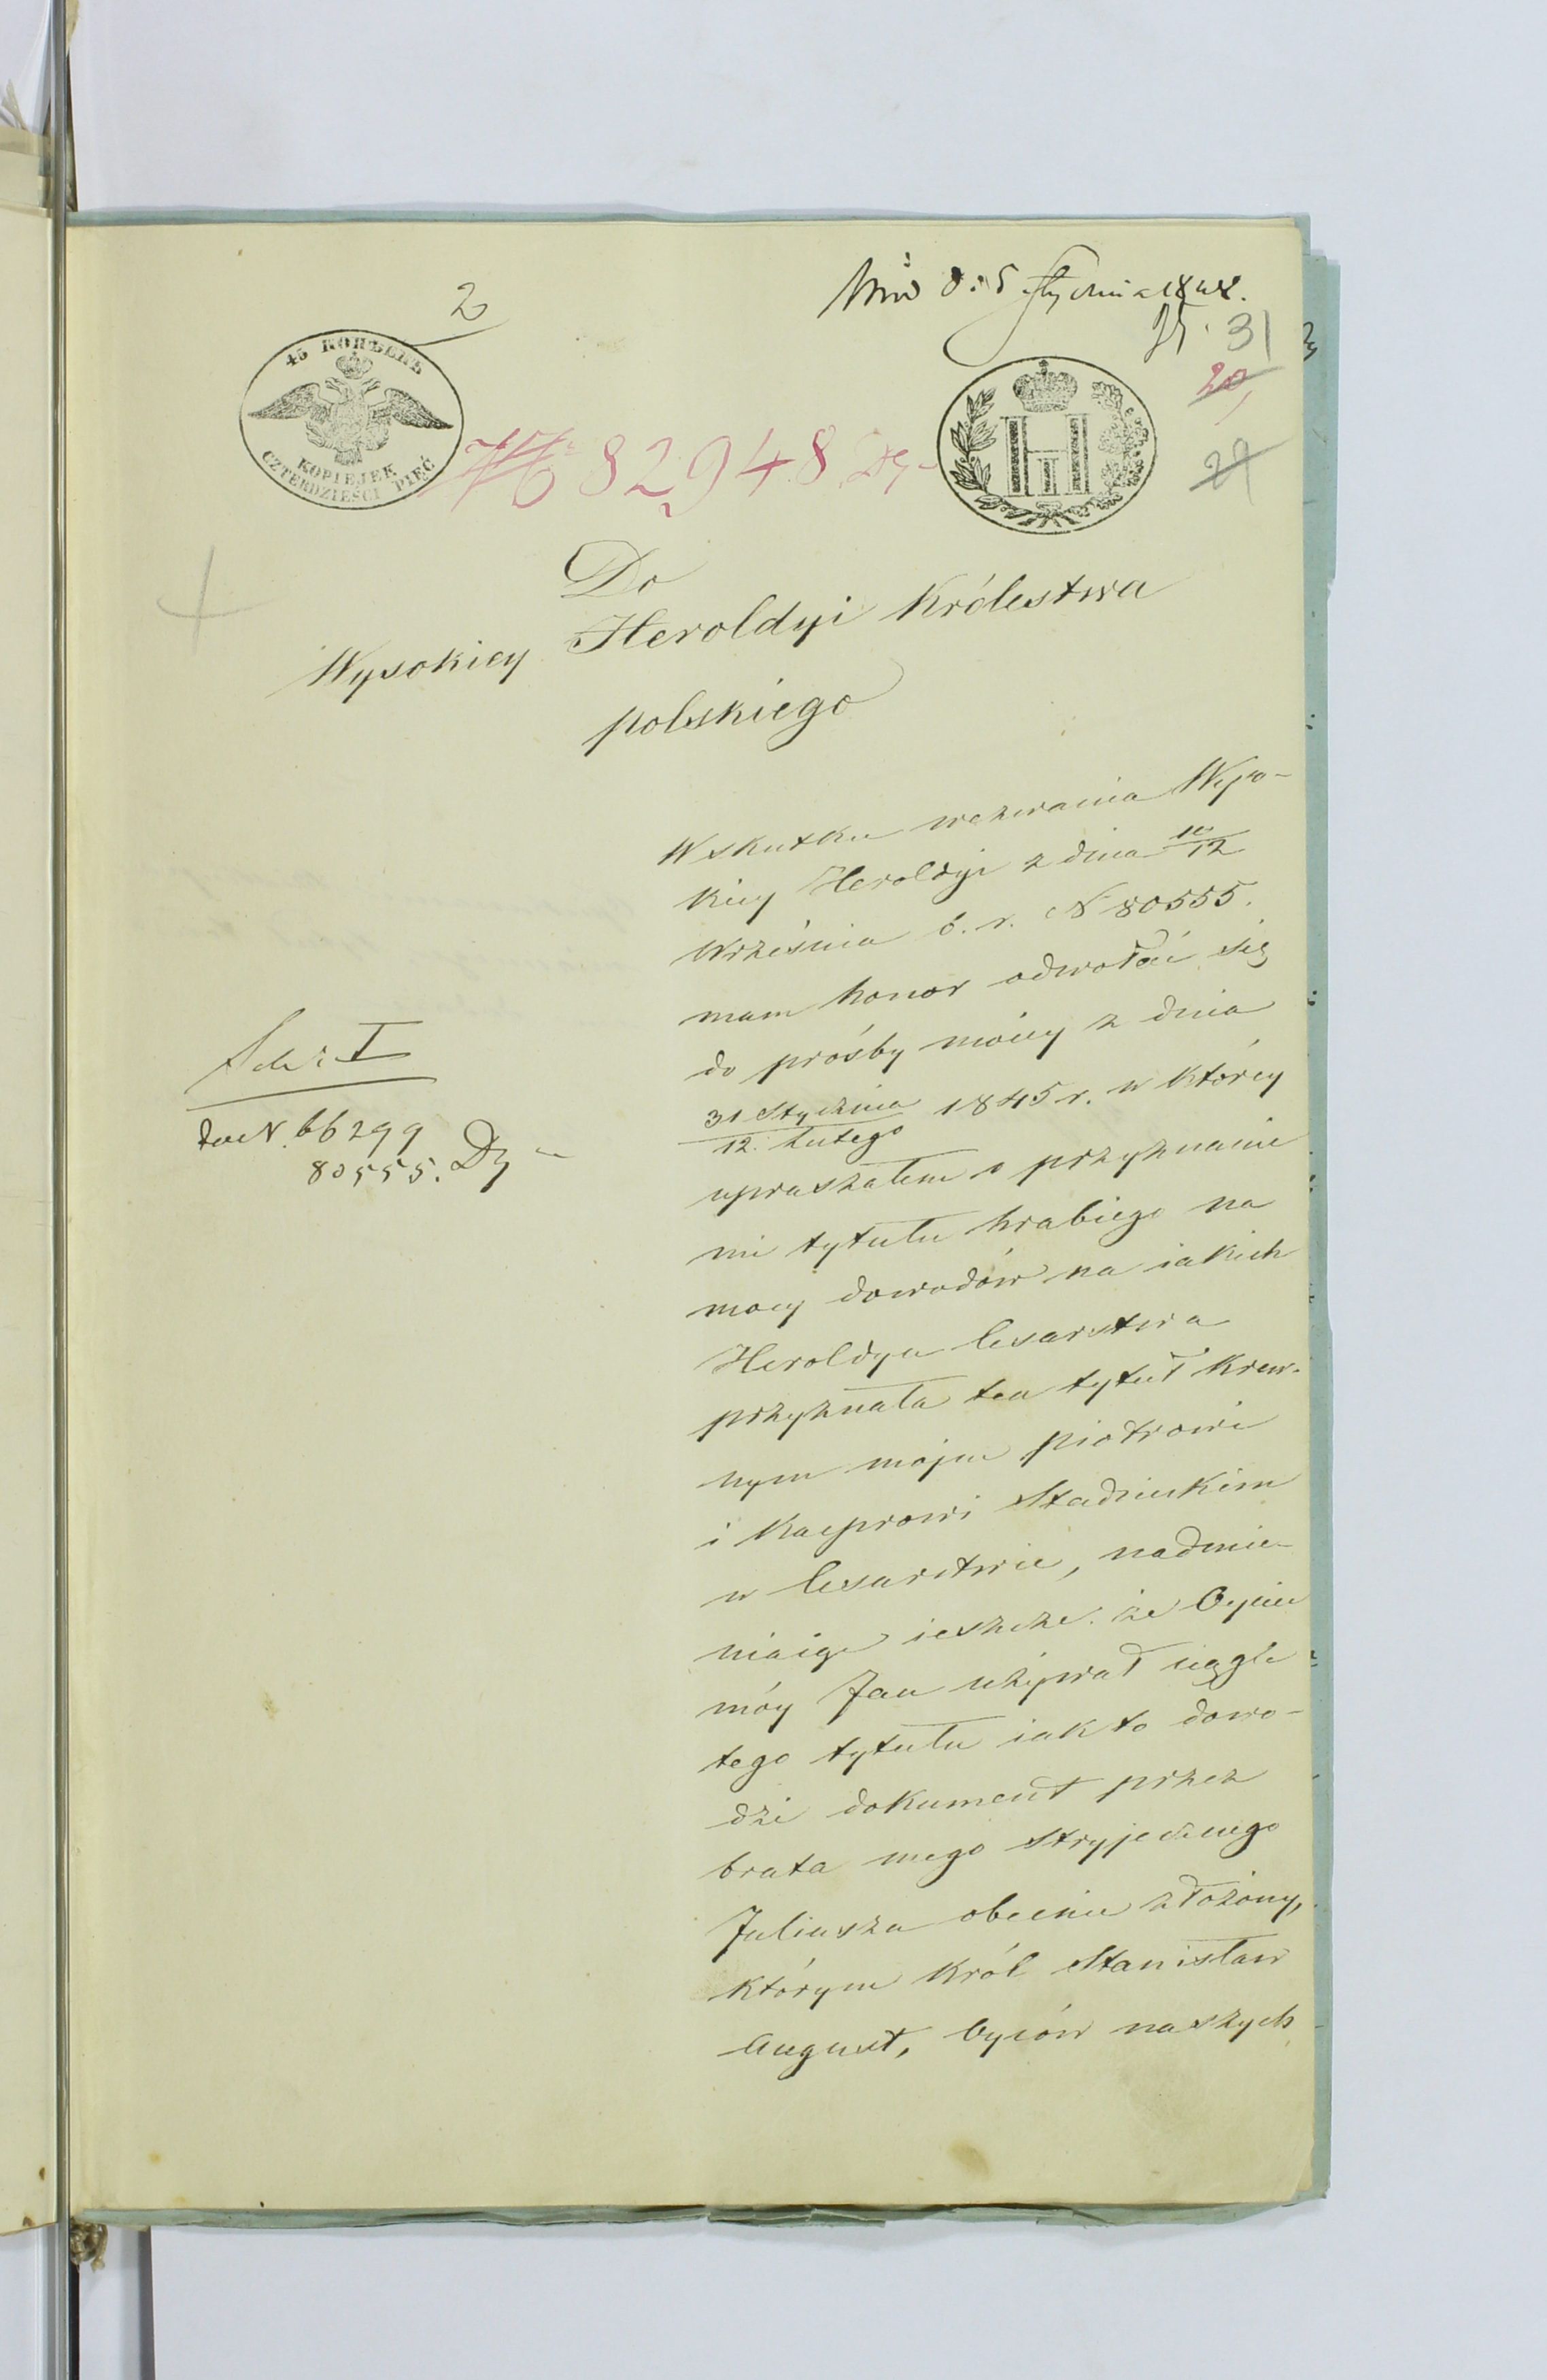 2
31
20
21
45 КОПѢЕКЪ
KOPIEJEK
CZTERDZIEŚCI PIĘĆ
№ 82948 Dy
H
II
Do
Wysokiey Heroldyi Królestwa
polskiego
W skutku wezwania Wyso-
kiey Heroldyi z dnia 10/12
Września b. r. N 80555.
mam honor odwołać się
do prośby moiey z dnia
31 Stycznia / 12. Lutego 1845 r. w którey
upraszałem o przyznanie
mi tytułu hrabiego na
mocy dowodów na iakich
Heroldya Cesarstwa
przyznała ten tytuł krew-
nym mojm piotrowi
i Kacprowi Stadnickim
w Cesarstwie, nadmie-
niaiąc ieszcze że Oyciec
móy Jan używał ciągle
tego tytułu iak to dowo-
dzi dokument przez
brata mego stryjecznego
Juliusza obecnie złożony,
którym Król Stanisław
August, Oyców naszych
Ser: I
do N. 66299
80555. Dy